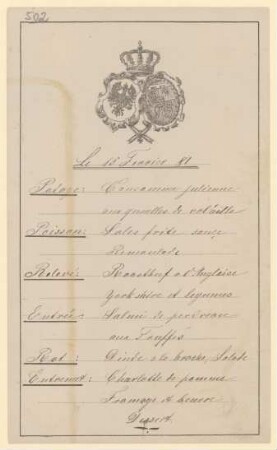 502
Le 18 Fevrier 81
Potage: Consomme julienne
aux quenelles de volaille
Poisson: Soles frits sauce
Remoulade
Relevé: Roastbeef a l'Anglaise
York-shire et legumes
Entrée: Salmi de perdreau
aux Truffes
Rot: Dinde a la broche, Salade
Entremet: Charlotte de pommes
Fromage et beurre
Dessert.